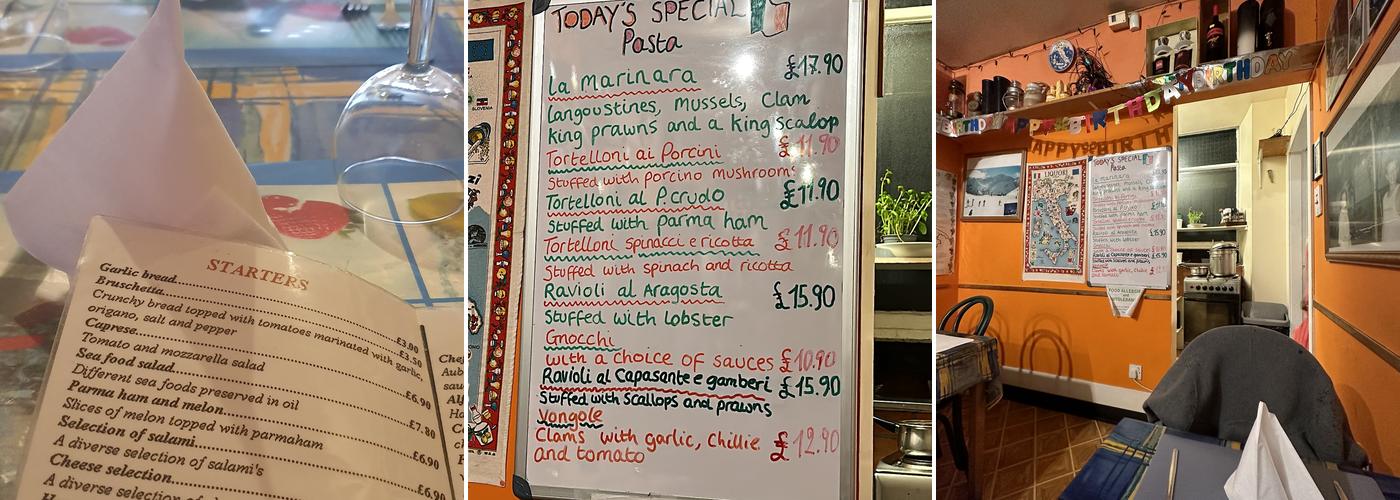 STARTERS
Garlic bread....................£3.00
Bruschetta....................£3.50
Crunchy bread topped with tomatoes marinated with garlic,
origano, salt and pepper
Caprese....................£6.90
Tomato and mozzarella salad
Sea food salad....................£7.80
Different sea foods preserved in oil
Parma ham and melon....................£6.90
Slices of melon topped with parmaham
Selection of salami....................£6.90
A diverse selection of salami's
Cheese selection
A diverse selection
SLOVENIA
TODAY'S SPECIAL
Pasta
la marinara £17.90
langoustines, mussels, Clam
king prawns and a king scalop
Tortelloni ai Porcini £11.90
Stuffed with porcino mushrooms
Tortelloni al P.crudo £11.90
Stuffed with parma ham
Tortelloni spinacci e ricotta £11.90
Stuffed with spinach and ricotta
Ravioli al Aragosta £15.90
Stuffed with lobster
Gnocchi
with a choice of sauces £10.90
Ravioli al Capasante e gamberi £15.90
Stuffed with Scallops and prawns
Vongole
Clams with garlic, chillie £12.90
and tomato
BIRTHDAY
HAPPY BIRTH
LIQUORI
TODAY'S SPECIAL
Pasta
la marinara
FOOD ALLERGIES